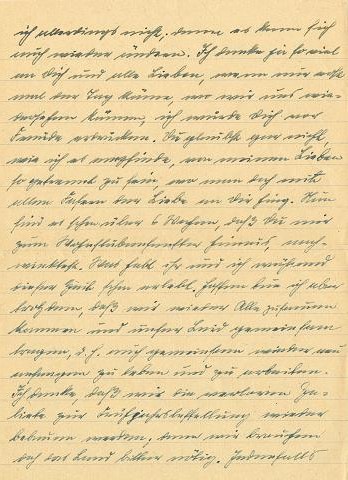 ich allerdings nicht, denn es kann sich
auch wieder ändern. Ich denke ja so viel
an Dich und alle Lieben, wenn nur erst
mal der Tag käme, wo wir uns wie-
dersehen können, ich würde Dich vor
Freude erdrücken. Du glaubst gar nicht,
wie ich es empfinde, von meinen Lieben
so getrennt zu sein, wo man doch mit
allen Fasern der Liebe an Dir hing. Nun
sind es schon über 6 Wochen, daß Du mir
zum Wohnstubenfenster hinaus, nach-
winktest. Was habt ihr und ich während
dieser Zeit schon erlebt. Hoffen tue ich aber
trotzdem, daß wir wieder Alle zusammen
kommen und unser Leid gemeinsam
tragen, d. h. auch gemeinsam wieder neu
anfangen zu leben und zu arbeiten.
Ich denke, daß wir die verlorenen Ge-
biete zur Frühjahrsbestellung wieder
bekommen werden, denn wir brauchen
doch das Land bitter nötig. Jedenfalls